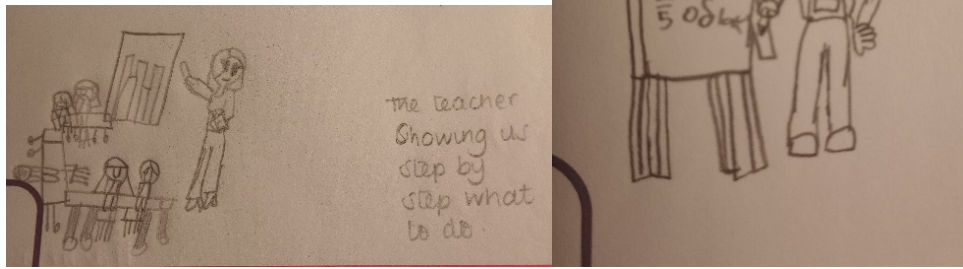 The teacher
Showing us
step by
step what
to do.
5 of